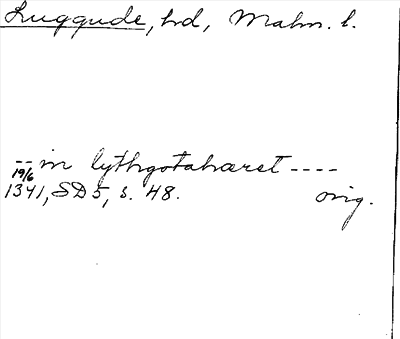 Luggude, hd, Malm. l.
-- in lythgotahæret ----
19/6
1341, SD 5, s. 48. orig.